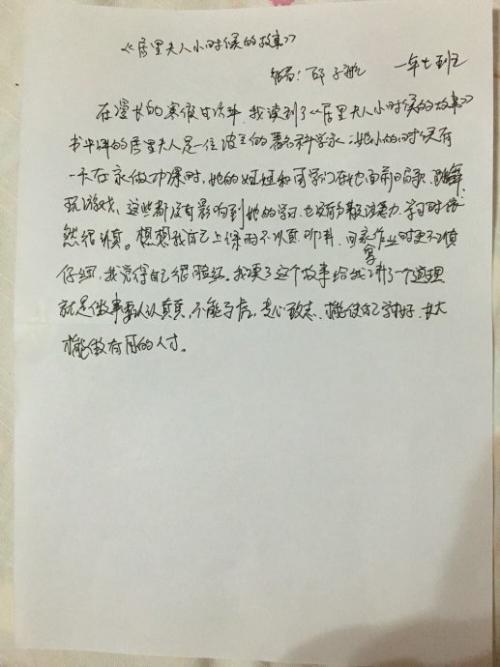 《居里夫人小时候的故事》
邱子航 一年七班
在漫长的寒假生活中,我读到了《居里夫人小时候的故事》
书中的居里夫人是一位波兰的著名科学家,她小的时候有
一天在家做功课时,她的姐姐和同学们在她面前唱歌、跳舞、
玩游戏,这些都没有影响到她的学习,也没有分散注意力,学习时依
然很认真。想想我自己上课而不认真听讲,回家写作业时更不认真
仔细,我觉得自己很脸红。我读了这个故事给我讲了一个道理
就是做事要认认真真,不能马虎,专心致志,才能使自己学好,长大
才能做有用的人才。